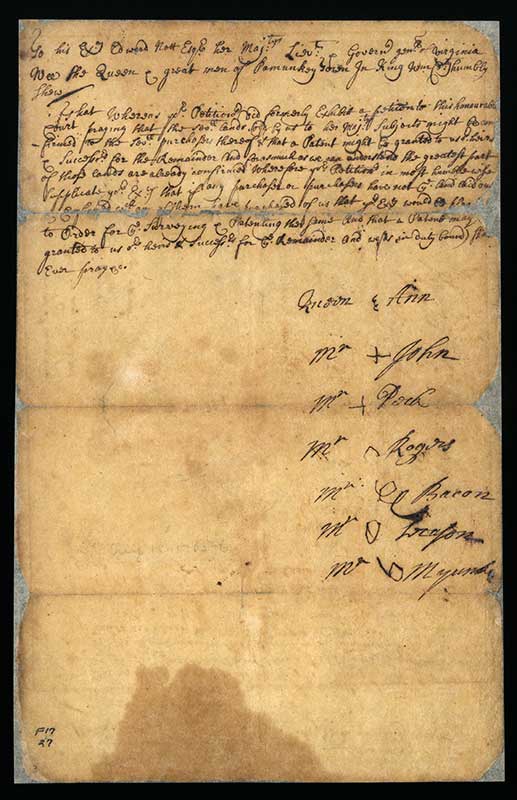 To his Exy Edward Nott Esqr her Majtys Lievt & Governr genll of Virginia
Wee the Queen & great men of Pamunkey Town In King Wm Cty humbly
Shew
That Whereas yr Petitionrs did formerly Exhibit a petition to this honourable
Court praying that the land to her Majtys Subjects might be con
firmed to the purchasers thereof & that a Patent might be granted to us our heirs
& Successrs for the Remainder And as much as we can understand the greatest part
of those lands are already confirmed Wherefore yr Petitionrs in most humble wise
Supplicate yr Exy that if any purchaser or purchasers have not And did
of us that yr Exy would be
to Order for ye Surveying & Patenting the same And that a Patent may
granted to us or heirs & Successrs for ye Remainder And in duty bound
Ever pray &c.
Queen & Ann
Mr + John
Mr + Dick
Mr Rogers
Mr Bacon
Mr
Mr
F17
27